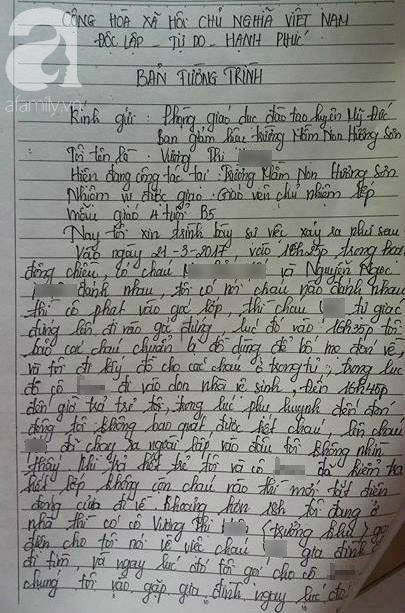 CỘNG HÒA XÃ HỘI CHỦ NGHĨA VIỆT NAM
ĐỘC LẬP - TỰ DO - HẠNH PHÚC
afamily.vn
BẢN TƯỜNG TRÌNH
Kính gửi: Phòng giáo dục đào tạo huyện Mỹ Đức
Ban giám hiệu trường Mầm Non Hương Sơn
Tôi tên là: Vương Thị
Hiện đang công tác tại: Trường Mầm Non Hương Sơn
Nhiệm vụ được giao: Giáo viên chủ nhiệm lớp
mẫu giáo 4 tuổi B5
Nay tôi xin trình bày sự việc xảy ra như sau
Vào ngày 21-3-2017 vào 16h25p, trong hoạt
động chiều, có cháu và Nguyễn Ngọc
đánh nhau, tôi có nói cháu nào đánh nhau
thì cô phạt vào góc lớp, thì cháu tự giác
đứng lên đi vào góc đứng, lúc đó vào 16h35p tôi
bảo các cháu chuẩn bị đồ dùng để bố mẹ đón về,
và tôi đi lấy đồ cho các cháu ở trong tủ, trong lúc
đó cô đi vào dọn nhà vệ sinh, đến 16h45p
đến giờ trả trẻ tôi, trong lúc phụ huynh đến đón
đông tôi không bao quát được hết cháu, lên cháu
đã chạy ra ngoài lúc vào đâu tôi không nhìn
thấy khi trả hết trẻ tôi và cô đã kiểm tra
hết lớp không còn cháu nào thì mới tắt điện
đóng cửa đi về khoảng hơn 18h tôi đang ở
nhà thì có cô Vương Thị (trưởng khu) gọi
điện cho tôi nói về việc cháu gia đình
đi tìm, và ngay lúc đó tôi gọi cho cô
chúng tôi vào gặp gia đình ngay lúc đó